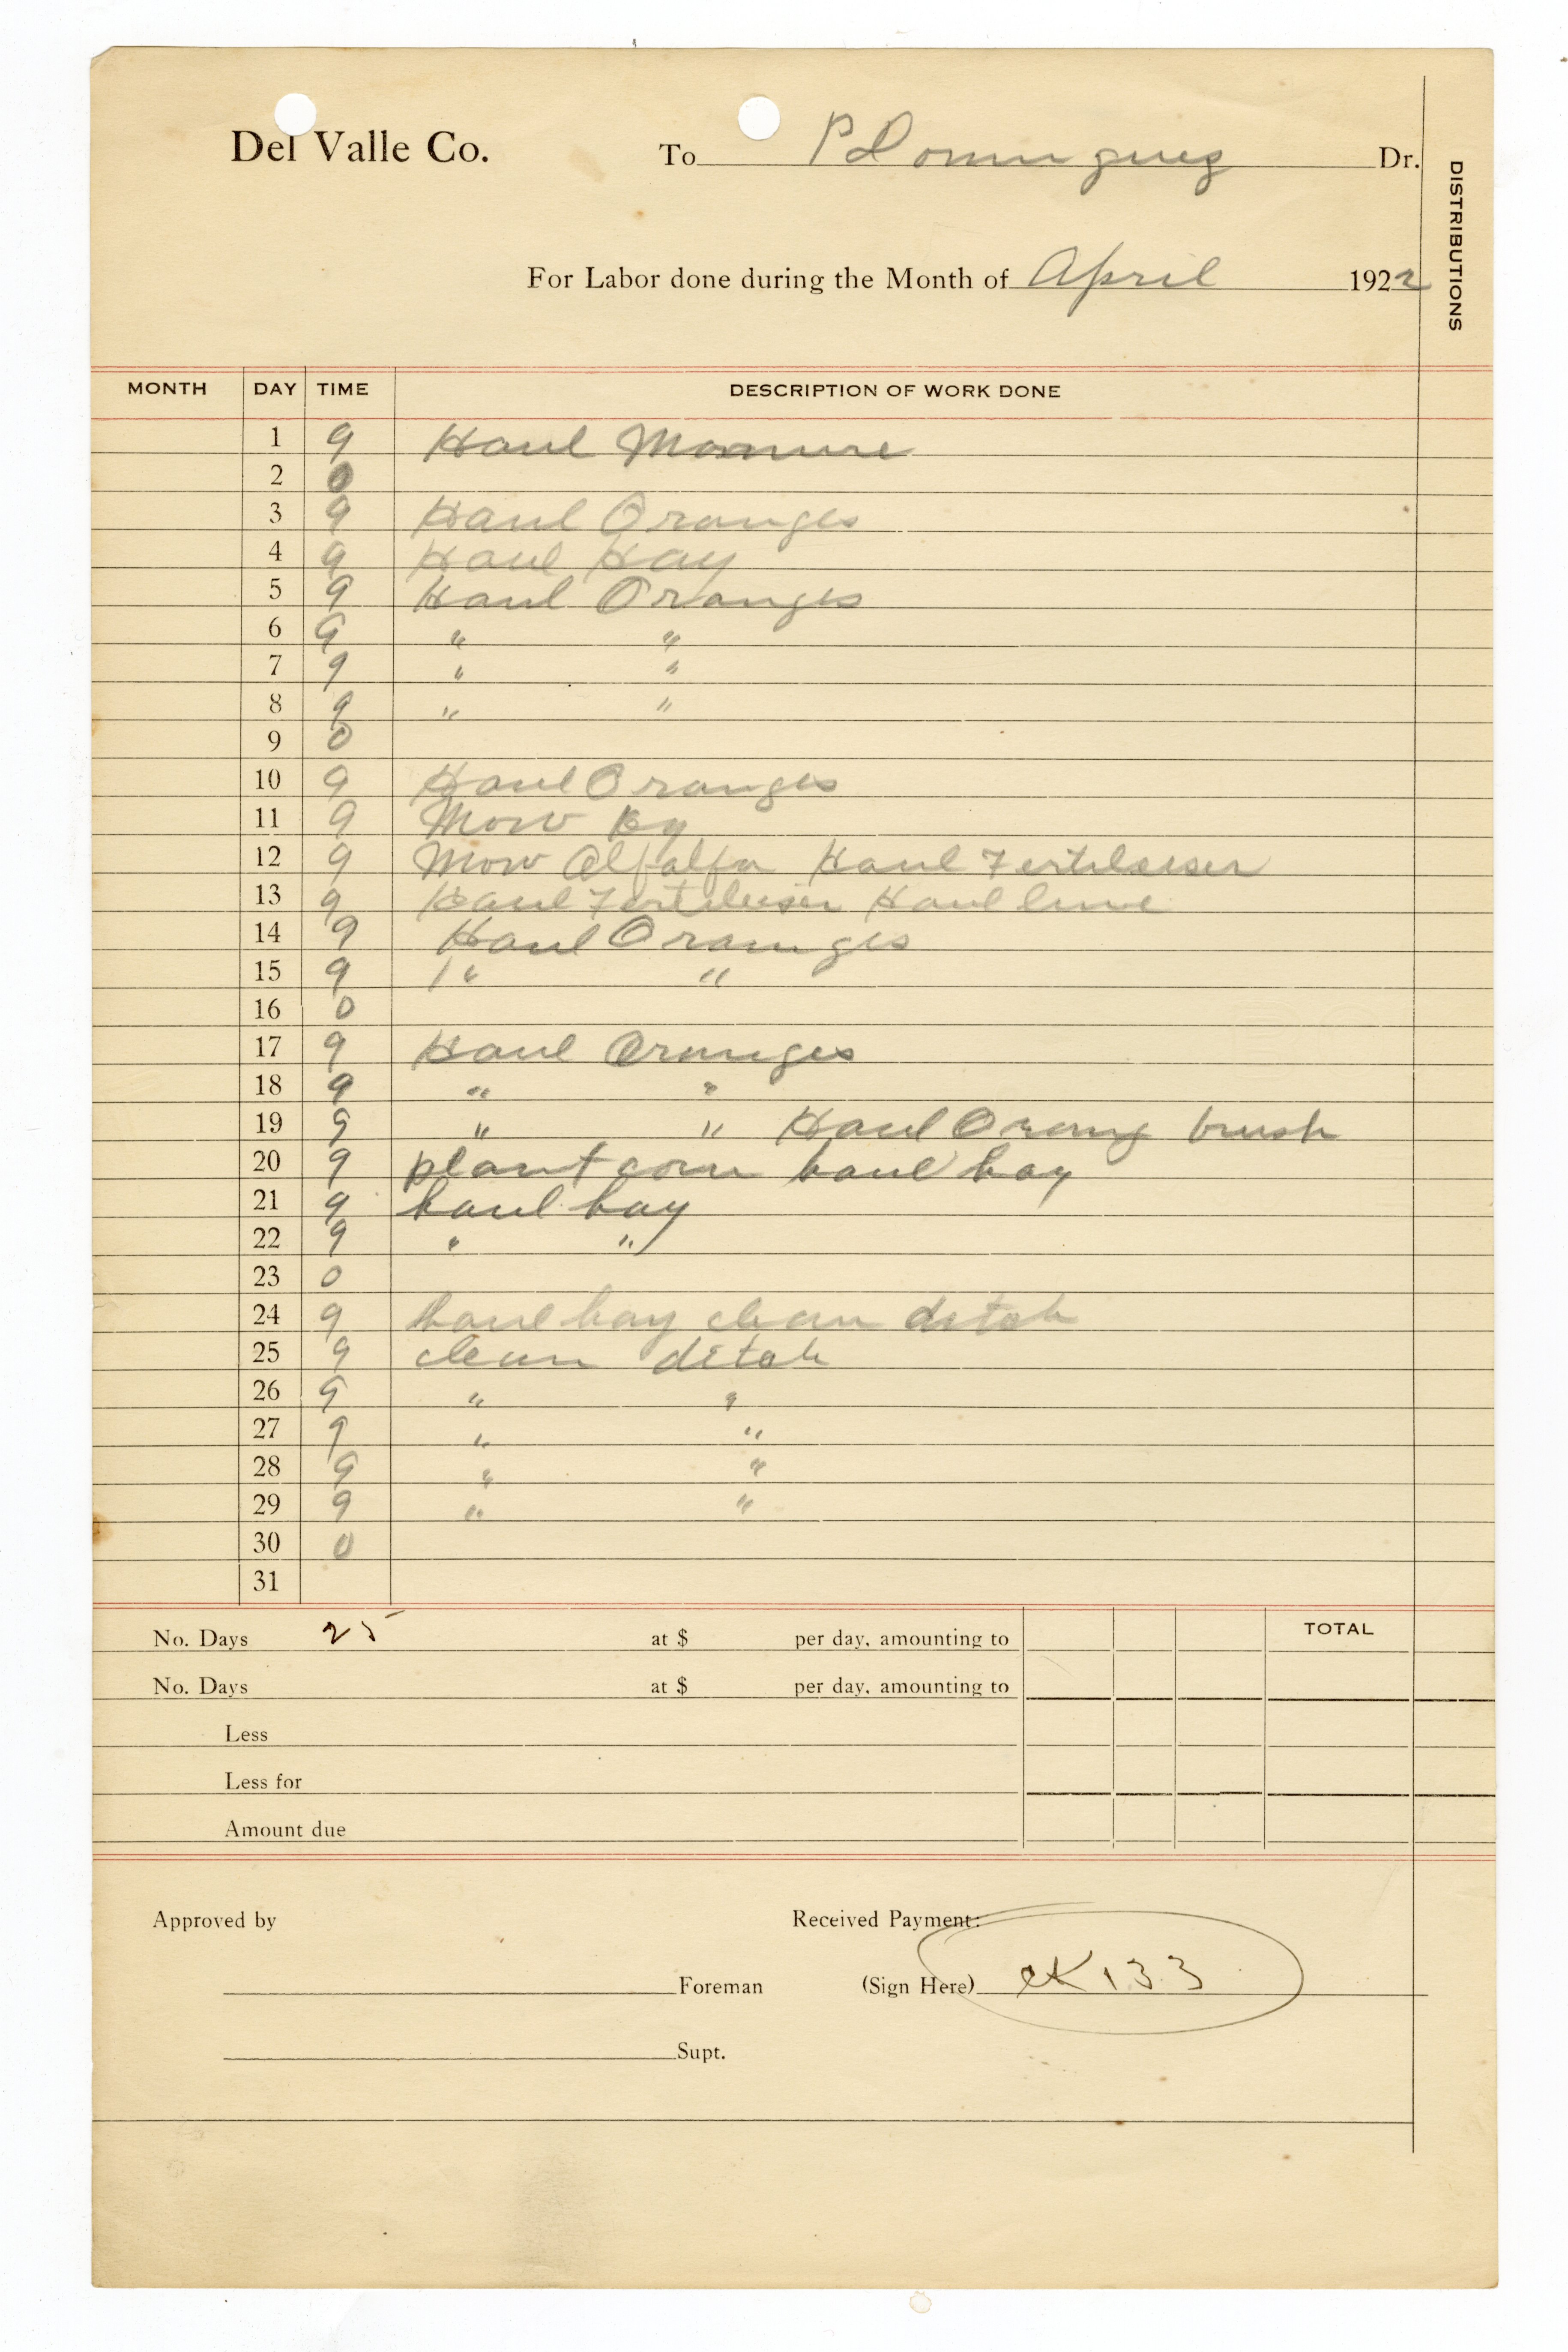 Del Valle Co. To P Dominguez Dr.
DISTRIBUTIONS
For Labor done during the Month of April 1922
MONTH DAY TIME DESCRIPTION OF WORK DONE
1 9 Haul Manure
2 0
3 9 Haul Oranges
4 9 Haul Hay
5 9 Haul Oranges
6 9 " "
7 9 " "
8 9 " "
9 0
10 9 Haul Oranges
11 9 Mow
12 9 Mow Alfalfa Haul Fertileiser
13 9 Haul Fertileiser Haul lime
14 9 Haul Oranges
15 9 " "
16 0
17 9 Haul Oranges
18 9 " "
19 9 " " Haul Orang brush
20 9 plant corn haul hay
21 9 haul hay
22 9 " "
23 0
24 9 haul hay clean ditch
25 9 clean ditch
26 9 " "
27 9 " "
28 9 " "
29 9 " "
30 0
31
No. Days 25 at $ per day, amounting to TOTAL
No. Days at $ per day, amounting to
Less
Less for
Amount due
Approved by Received Payment:
Foreman (Sign Here) CK 133
Supt.